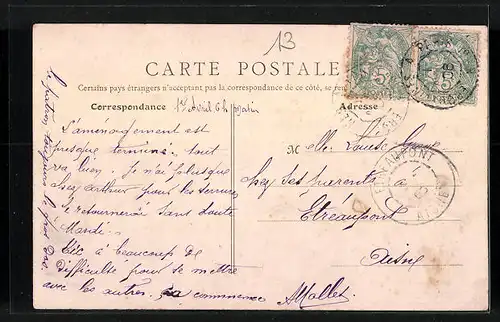 13
CARTE POSTALE
Certains pays étrangers n'acceptant pas la correspondance de ce côté, se
Correspondance
1er Avril 6h matin
L'aménagement est
presque terminé. tout
va bien. Je n'ai plus que
chez arthur pour les
Je retournerai sans doute
Mardi.
à beaucoup de
difficulté pour se mettre
avec les autres. commence
Adresse
M elle Louise
chez ses parents à
Etréaupont
Aisne
AMallet
ETREAUPONT
AISNE